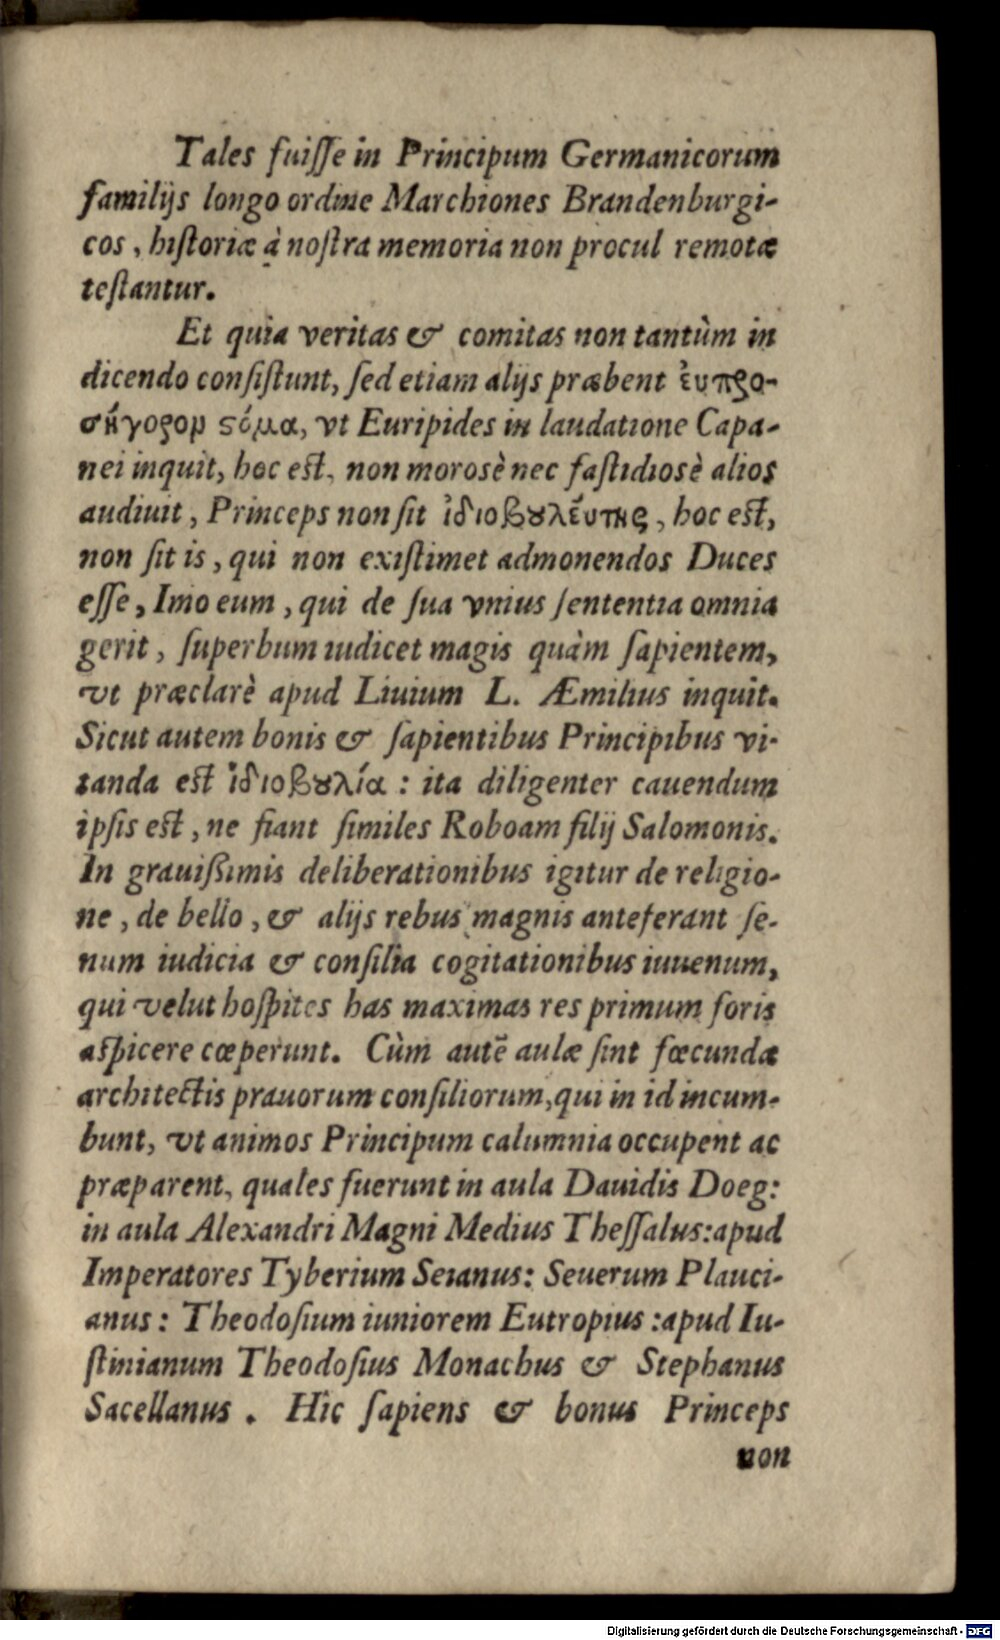 Tales fuiſſe in Principum Germanicorum
familijs longo ordine Marchiones Brandenburgi-
cos, hiſtoriæ à noſtra memoria non procul remotæ
teſtantur.
Et quia veritas & comitas non tantùm in
dicendo conſiſtunt, ſed etiam alijs præbent ἐυπρο-
σήγορομ ϛόμα, vt Euripides in laudatione Capa-
nei inquit, hoc est, non morosè nec faſtidiosè alios
audiuit, Princeps non ſit ἰδιοβȣλέυτης, hoc est,
non ſit is, qui non exiſtimet admonendos Duces
eſſe, Imo eum, qui de ſua vnius ſententia omnia
gerit, ſuperbum iudicet magis quàm ſapientem,
vt præclarè apud Liuium L. Æmilius inquit.
Sicut autem bonis & ſapientibus Principibus vi-
tanda est ἰδιοβȣλία: ita diligenter cauendum
ipſis est, ne fiant ſimiles Roboam filij Salomonis.
In grauiſſimis deliberationibus igitur de religio-
ne, de bello, & alijs rebus magnis anteferant ſe-
num iudicia & conſilia cogitationibus iuuenum,
qui velut hoſpites has maximas res primum foris
aſpicere cœperunt. Cùm autē aulæ ſint fœcundæ
architectis prauorum conſiliorum, qui in id incum-
bunt, vt animos Principum calumnia occupent ac
præparent, quales fuerunt in aula Dauidis Doeg:
in aula Alexandri Magni Medius Theſſalus: apud
Imperatores Tyberium Seianus: Seuerum Plauci-
anus: Theodoſium iuniorem Eutropius: apud Iu-
ſtinianum Theodoſius Monachus & Stephanus
Sacellanus. Hic ſapiens & bonus Princeps
non
Digitalisierung gefördert durch die Deutsche Forschungsgemeinschaft - DFG